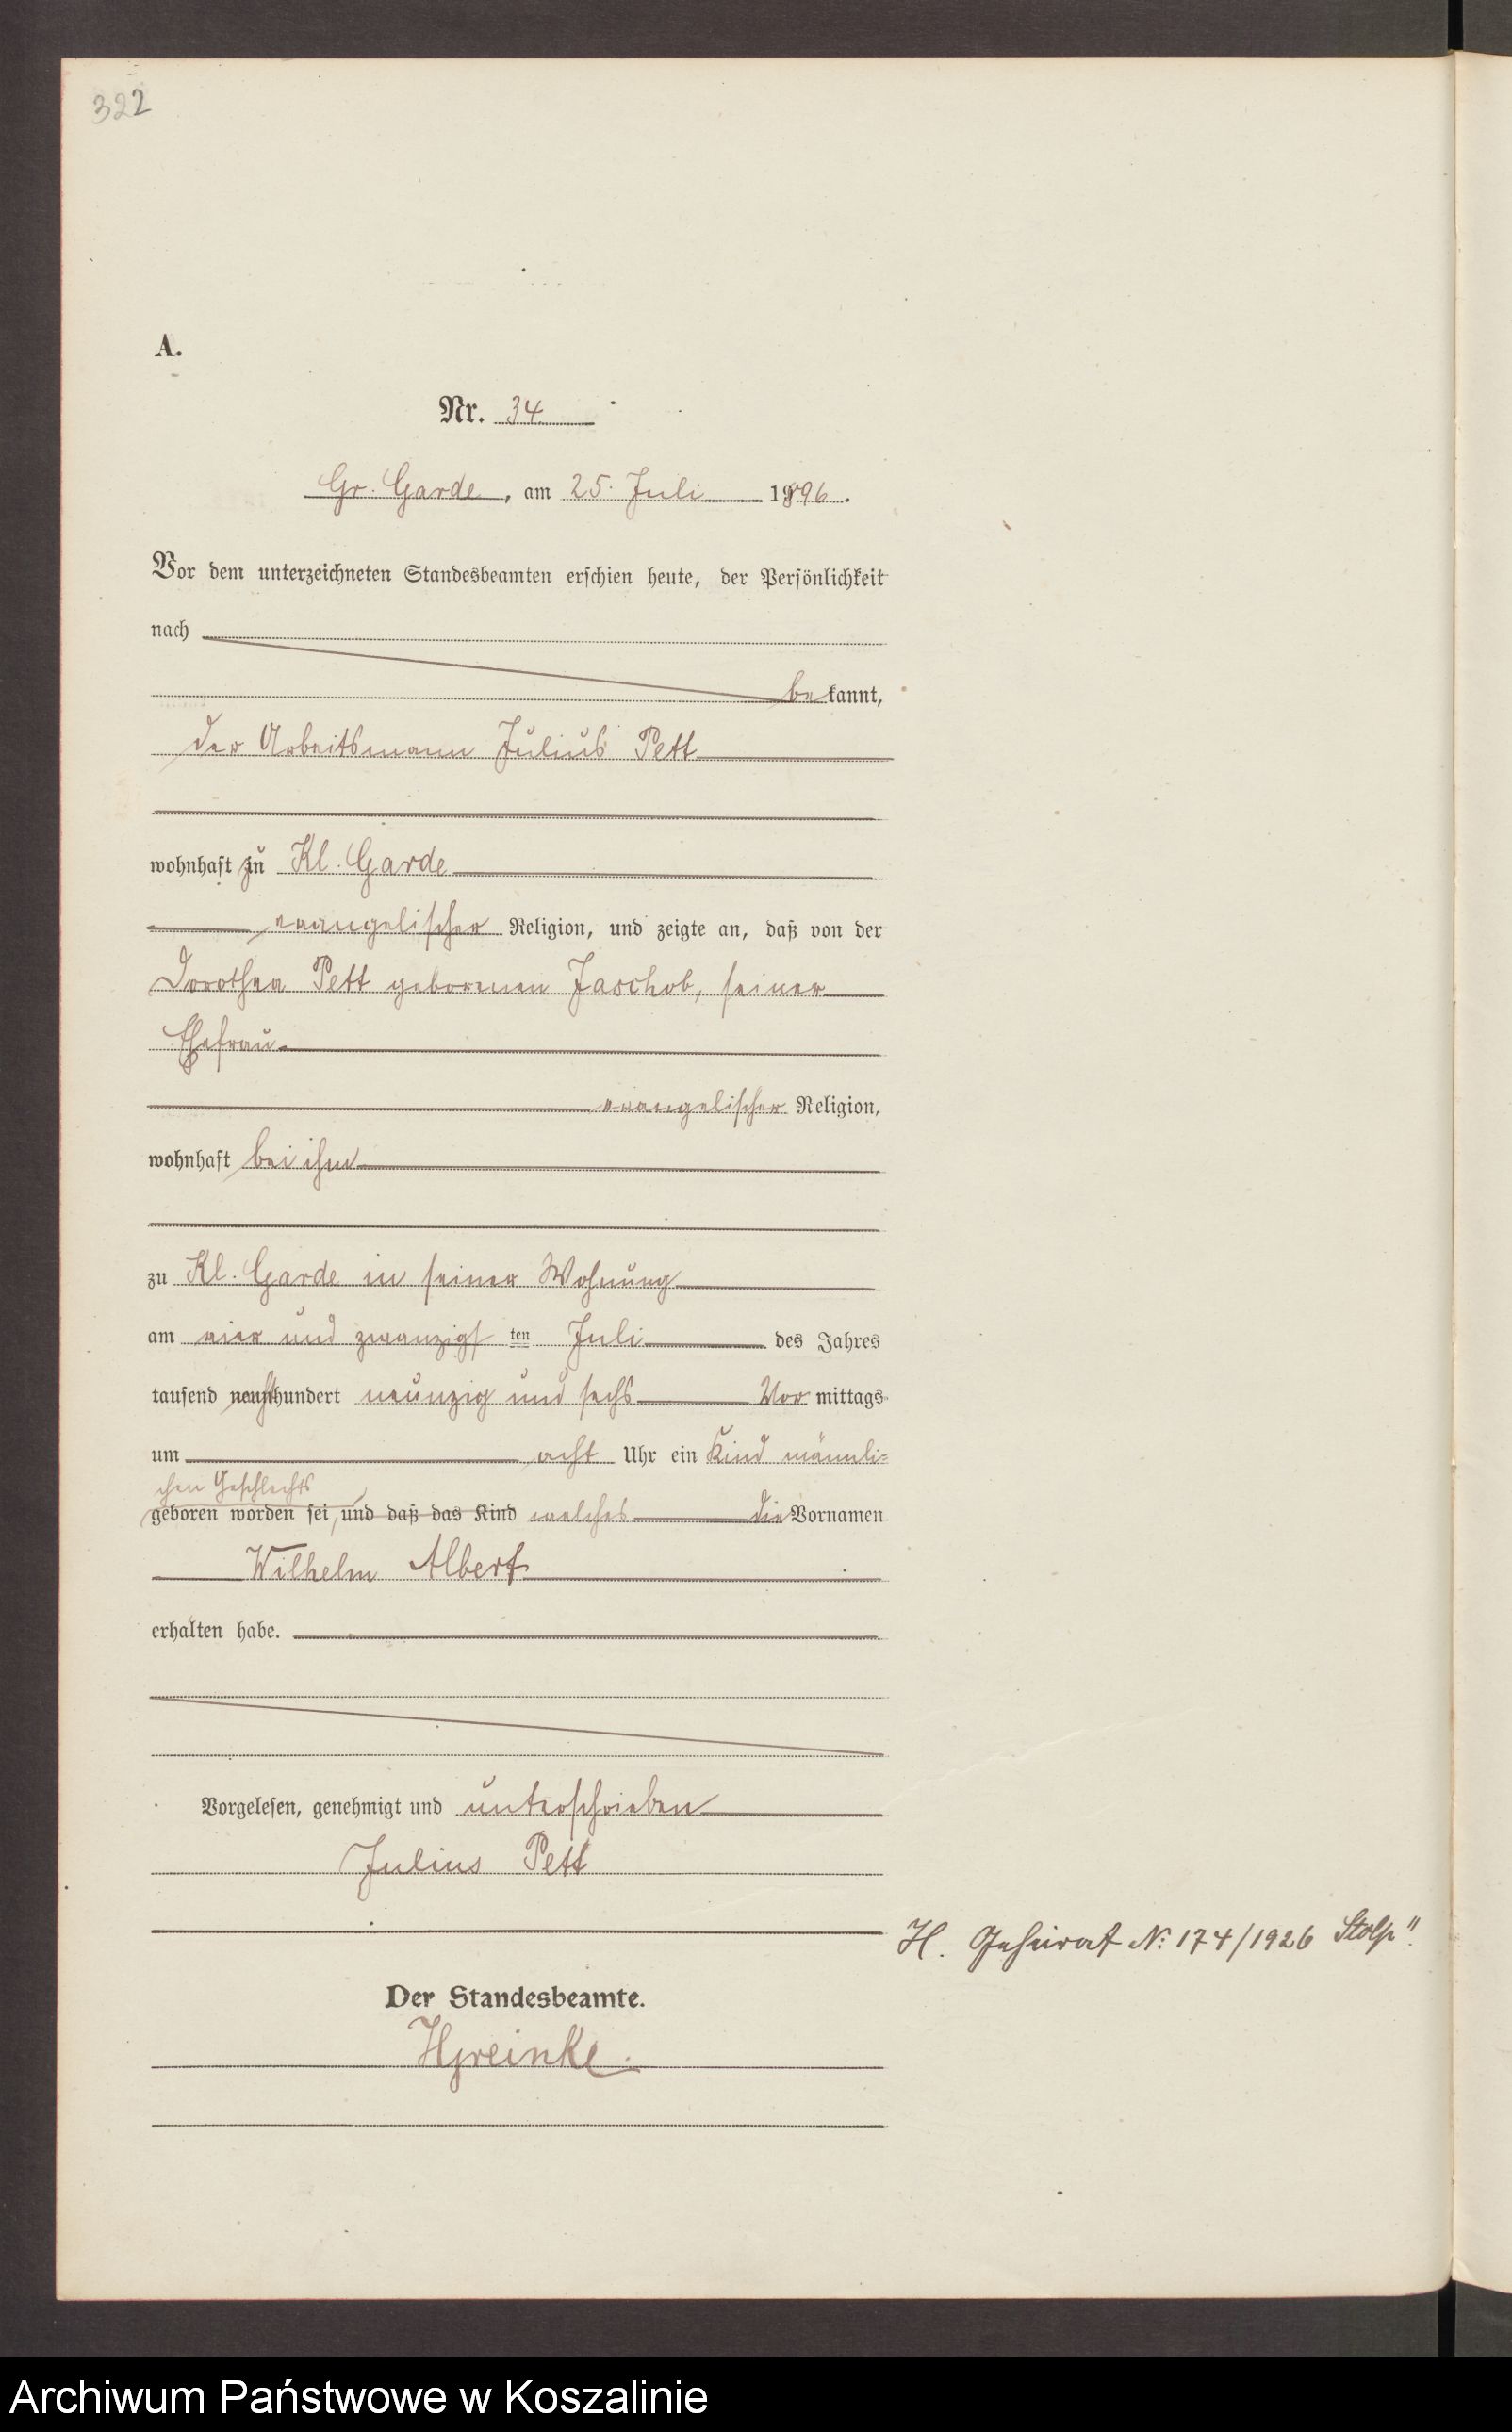 322
A.
Nr. 34
Gr. Garde, am 25. Juli 1896.
Vor dem unterzeichneten Standesbeamten erschien heute, der Persönlichkeit
nach
bekannt,
der Arbeitsmann Julius Pett
wohnhaft zu Kl. Garde
evangelischer Religion, und zeigte an, daß von der
Dorothea Pett geborenen Jaschob, seiner
Ehefrau
evangelischer Religion,
wohnhaft bei ihm
zu Kl. Garde in seiner Wohnung
am vier und zwanzigsten Juli des Jahres
tausend achthundert neunzig und sechs Vor mittags
um acht Uhr ein Kind männli-
chen Geschlechts
geboren worden sei, und daß das Kind welches die Vornamen
Wilhelm Albert
erhalten habe.
Vorgelesen, genehmigt und unterschrieben
Julius Pett
H. Geheirat No. 174/1926 Stolp".
Der Standesbeamte.
Archiwum Państwowe w Koszalinie